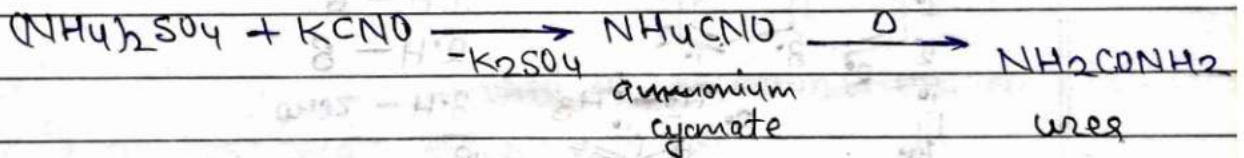 (NH4)2SO4 + KCNO → NH4CNO Δ →
-K2SO4 NH2CONH2
ammonium
cyanate urea